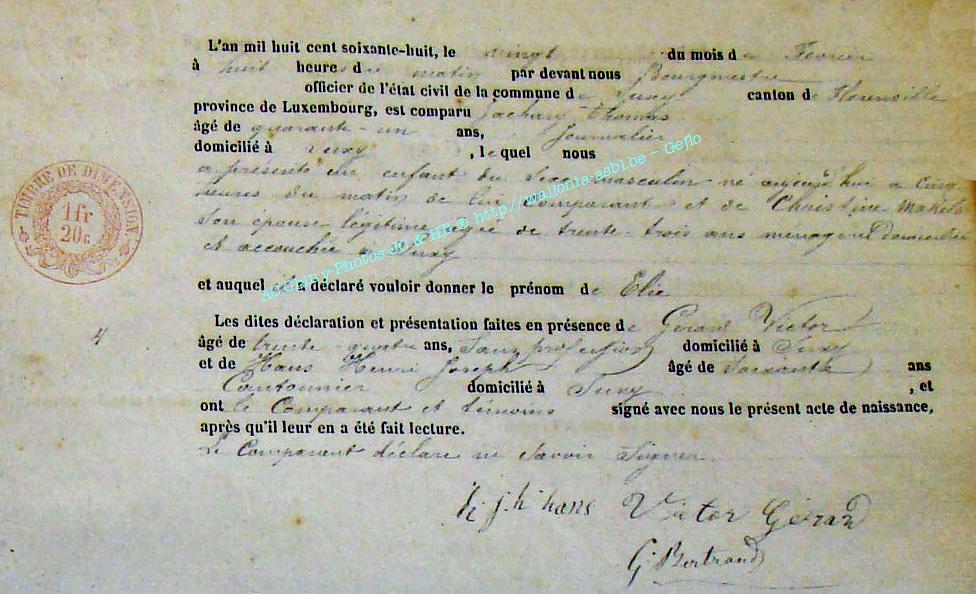 L'an mil huit cent soixante-huit, le vingt du mois de Fevrier
à huit heures du matin par devant nous Bourgmestre
officier de l'état civil de la commune de Suxy canton de Florenville
province de Luxembourg, est comparu Zachary Thomas
âgé de quarante-un ans, Journalier
domicilié à Suxy, lequel nous
a présenté un enfant du Sexe masculin né aujourd'hui a cinq
heures du matin de lui Comparant et de Christine
Son épouse légitime agée de trente-trois ans menagère Domiciliée
et accouchée a Suxy
et auquel il a déclaré vouloir donner le prénom de Elie
Les dites déclaration et présentation faites en présence de Gérard Victor
âgé de trente-quatre ans, Sans profession domicilié à Suxy
et de Hans Henri Joseph âgé de Soixante ans
Cantonnier domicilié à Suxy, et
ont le Comparant et témoins signé avec nous le présent acte de naissance,
après qu'il leur en a été fait lecture.
Le Comparant déclare ne Savoir Signer.
h j h hans Victor Gérard
G. Bertrand
TIMBRE DE DIMENSION
1 fr
20 c
Photos JO & HB © http://wallonia-asbl.be - Geflo